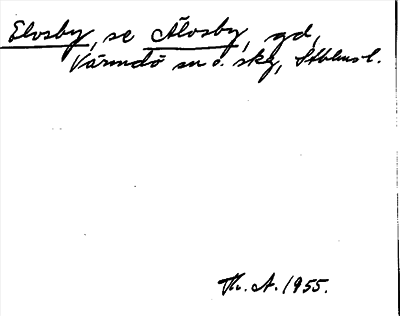 Elvsby, se Älvsby, gd,
Värmdö sn o. skg, Sthlms l.
Th. A. 1955.